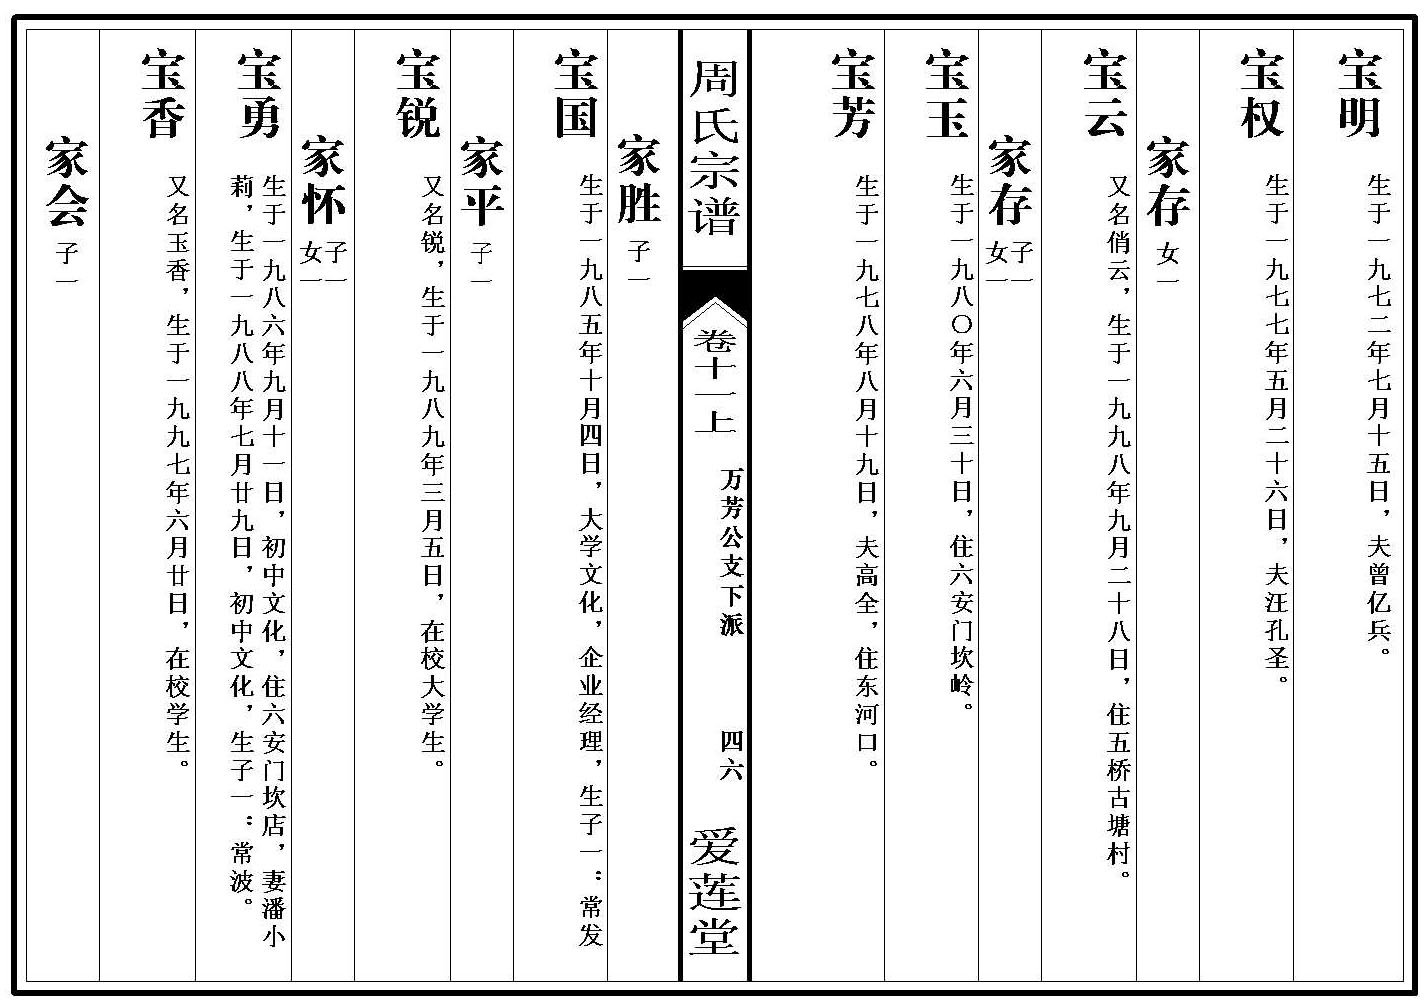 宝明 生于一九七二年七月十五日，夫曾亿兵。
宝权 生于一九七七年五月二十六日，夫汪孔圣。
家存 女一
宝云 又名俏云，生于一九九八年九月二十八日，住五桥古塘村。
家存 子一
女一
宝玉 生于一九八〇年六月三十日，住六安门坎岭。
宝芳 生于一九七八年八月十九日，夫高全，住东河口。
周氏宗谱 卷十一上 万芳公支下派 四六 爱莲堂
家胜 子一
宝国 生于一九八五年十月四日，大学文化，企业经理，生子一：常发
家平 子一
宝锐 又名锐，生于一九八九年三月五日，在校大学生。
家怀 子一
女一
宝勇 生于一九八六年九月十一日，初中文化，住六安门坎店，妻潘小
莉，生于一九八八年七月廿九日，初中文化，生子一：常波。
宝香 又名玉香，生于一九九七年六月廿日，在校学生。
家会 子一